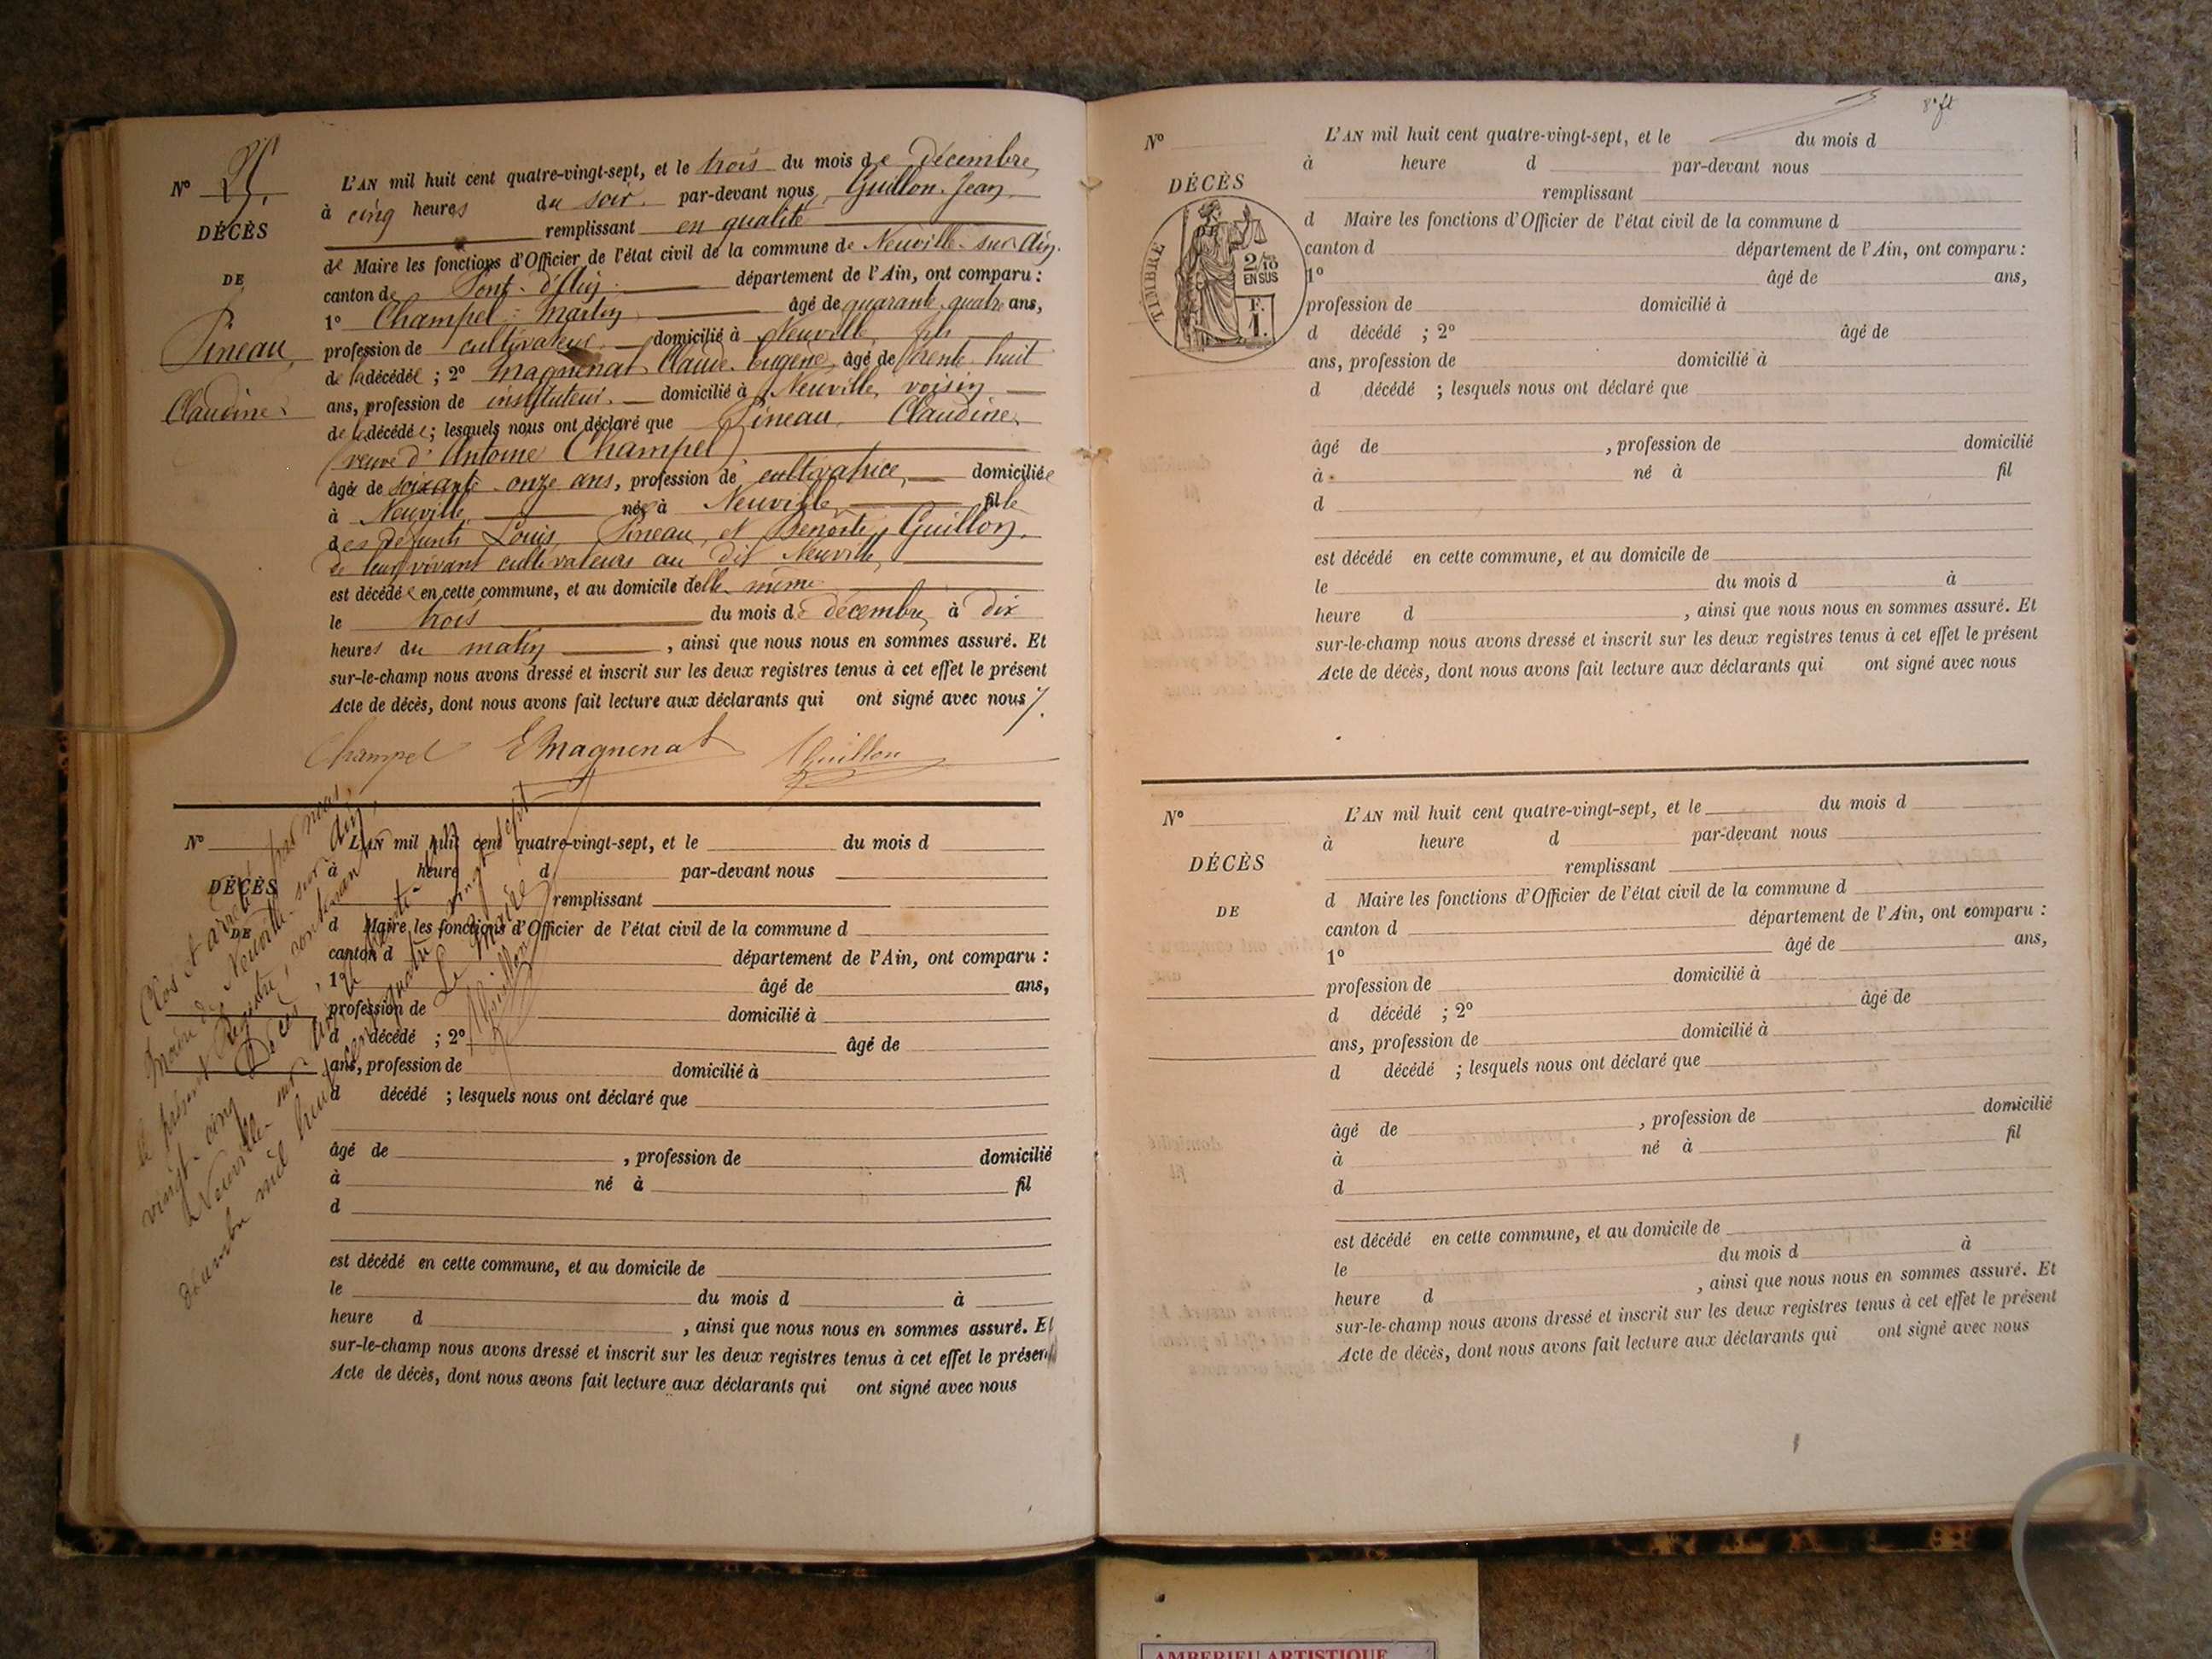 N° 25.
DÉCÈS
DE
Pineau,
Claudine.
L'AN mil huit cent quatre-vingt-sept, et le trois du mois de décembre,
à cinq heures du soir. par-devant nous, Guillon Jean
remplissant en qualité
de Maire les fonctions d'Officier de l'état civil de la commune de Neuville-sur-Ain.
canton de Pont-d'Ain département de l'Ain, ont comparu :
1° Champel Martin âgé de quarante quatre ans,
profession de cultivateur domicilié à Neuville, fils
de la décédée ; 2° Magnenat Claude Eugène, âgé de trente huit
ans, profession de instituteur. domicilié à Neuville, voisin
de la décédée ; lesquels nous ont déclaré que Pineau Claudine,
(veuve d'Antoine Champel)
âgée de soixante onze ans, profession de cultivatrice, domiciliée
à Neuville, née à Neuville, fille
des défunts Louis Pineau, et Benoîte Guillon,
de leur vivant cultivateurs au dit Neuville,
est décédée en cette commune, et au domicile d'elle même
le trois du mois de décembre, à dix
heures du matin, ainsi que nous nous en sommes assuré. Et
sur-le-champ nous avons dressé et inscrit sur les deux registres tenus à cet effet le présent
Acte de décès, dont nous avons fait lecture aux déclarants qui ont signé avec nous
Champel E Magnenat Guillon
N°
DÉCÈS
DE
L'AN mil huit cent quatre-vingt-sept, et le du mois d
à heure d par-devant nous
remplissant
d Maire les fonctions d'Officier de l'état civil de la commune d
canton d département de l'Ain, ont comparu :
1° âgé de ans,
profession de domicilié à
d décédé ; 2° âgé de
ans, profession de domicilié à
d décédé ; lesquels nous ont déclaré que
âgé de , profession de domicilié
à né à fil
d
est décédé en cette commune, et au domicile de
le du mois d à
heure d , ainsi que nous nous en sommes assuré. Et
sur-le-champ nous avons dressé et inscrit sur les deux registres tenus à cet effet le présent
Acte de décès, dont nous avons fait lecture aux déclarants qui ont signé avec nous
Clos et arrêté par nous,
Maire de Neuville-sur-Ain,
le présent Registre, contenant
vingt-cinq Décès,
à Neuville-sur-Ain, le trente un
décembre mil huit cent quatre vingt sept
Le Maire
Guillon
N°
DÉCÈS
TIMBRE
2/10
EN SUS
F.
1.
L'AN mil huit cent quatre-vingt-sept, et le du mois d
à heure d par-devant nous
remplissant
d Maire les fonctions d'Officier de l'état civil de la commune d
canton d département de l'Ain, ont comparu :
1° âgé de ans,
profession de domicilié à
d décédé ; 2° âgé de
ans, profession de domicilié à
d décédé ; lesquels nous ont déclaré que
âgé de , profession de domicilié
à né à fil
d
est décédé en cette commune, et au domicile de
le du mois d à
heure d , ainsi que nous nous en sommes assuré. Et
sur-le-champ nous avons dressé et inscrit sur les deux registres tenus à cet effet le présent
Acte de décès, dont nous avons fait lecture aux déclarants qui ont signé avec nous
N°
DÉCÈS
DE
L'AN mil huit cent quatre-vingt-sept, et le du mois d
à heure d par-devant nous
remplissant
d Maire les fonctions d'Officier de l'état civil de la commune d
canton d département de l'Ain, ont comparu :
1° âgé de ans,
profession de domicilié à
d décédé ; 2° âgé de
ans, profession de domicilié à
d décédé ; lesquels nous ont déclaré que
âgé de , profession de domicilié
à né à fil
d
est décédé en cette commune, et au domicile de
le du mois d à
heure d , ainsi que nous nous en sommes assuré. Et
sur-le-champ nous avons dressé et inscrit sur les deux registres tenus à cet effet le présent
Acte de décès, dont nous avons fait lecture aux déclarants qui ont signé avec nous
AMBERIEU ARTISTIQUE